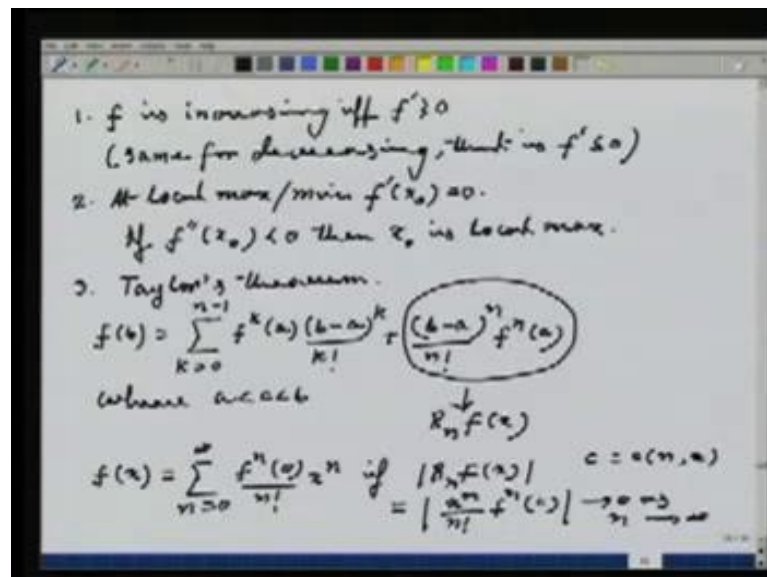 1. f is increasing iff f' ≥ 0
(same for decreasing, that is f' ≤ 0)
2. At local max/min f'(x₀) = 0.
If f''(x₀) < 0 then x₀ is local max.
3. Taylor's theorem.
f(b) = ∑_{k=0}^{n-1} f^k(a) (b-a)^k / k! + (b-a)^n / n! f^n(c)
where a<c<b
↓
R_n f(x)
f(x) = ∑_{n=0}^{∞} f^n(0)/n! x^n if |R_n f(x)| c = c(n,x)
= | x^n/n! f^n(c) | → 0 as n → ∞